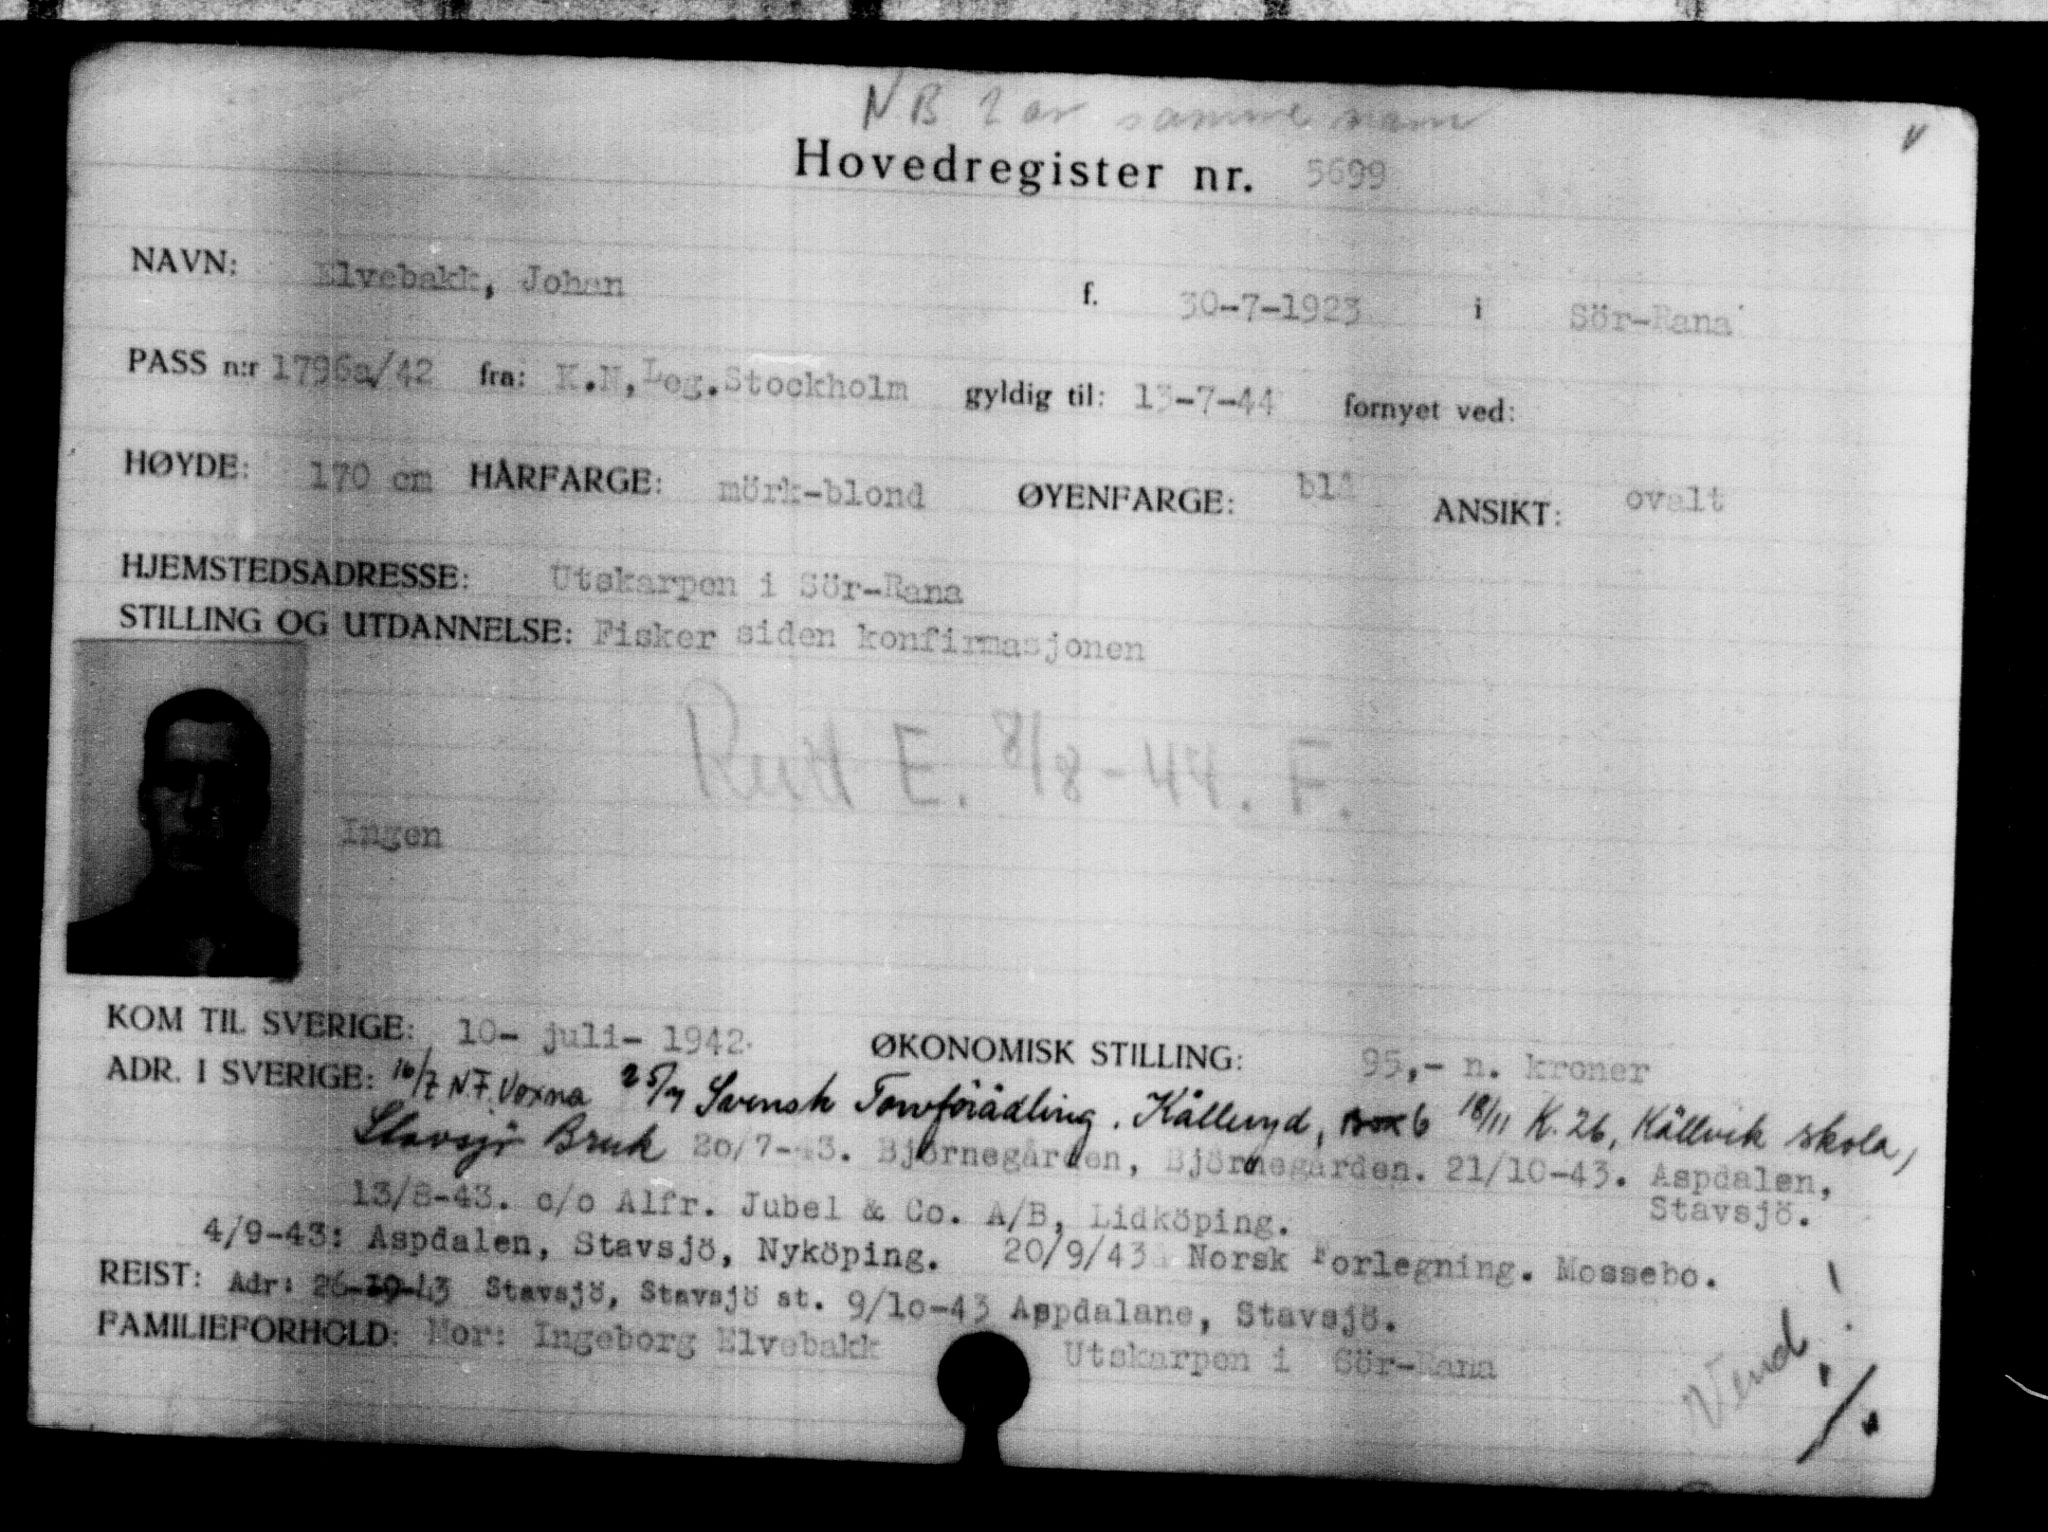 NB 2 av samme navn
Hovedregister nr. 5699
NAVN: Elvebakk, Johan f. 30-7-1923 i Sör-Rana
PASS n:r 1796a/42 fra: K.N.Leg.Stockholm gyldig til: 13-7-44 fornyet ved:
HØYDE: 170 cm HÅRFARGE: mörk-blond ØYENFARGE: blå ANSIKT: ovalt
HJEMSTEDSADRESSE: Utskarpen i Sör-Rana
STILLING OG UTDANNELSE: Fisker siden konfirmasjonen
E. 8/8-44. F.
Ingen
KOM TIL SVERIGE: 10- juli- 1942. ØKONOMISK STILLING: 95,- n. kroner
ADR. I SVERIGE: 16/7 N.F. Voxna 25/9 Svensk Torvförädling, Källeryd, Box 6 18/11 K.26, Källvik skola,
Stavsjö Bruk 20/7-43. Björnegården, Björnegården. 21/10-43. Aspdalen,
Stavsjö.
13/8-43. c/o Alfr. Jubel & Co. A/B, Lidköping.
4/9-43: Aspdalen, Stavsjö, Nyköping. 20/9/43 Norsk Forlegning. Mossebo.
REIST: Adr: 26-10-43 Stavsjö, Stavsjö st. 9/10-43 Aspdalane, Stavsjö.
FAMILIEFORHOLD: Mor: Ingeborg Elvebakk Utskarpen i Sör-Rana
Vend!